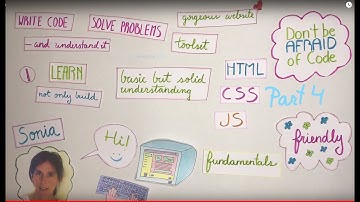 WRITE CODE
SOLVE PROBLEMS
gorgeous website
Don't be
AFRAID
of Code
– and understand it
toolset
! LEARN
basic but solid
understanding
HTML
not only build
CSS
Part 4
JS
Sonia
Hi!
fundamentals
friendly